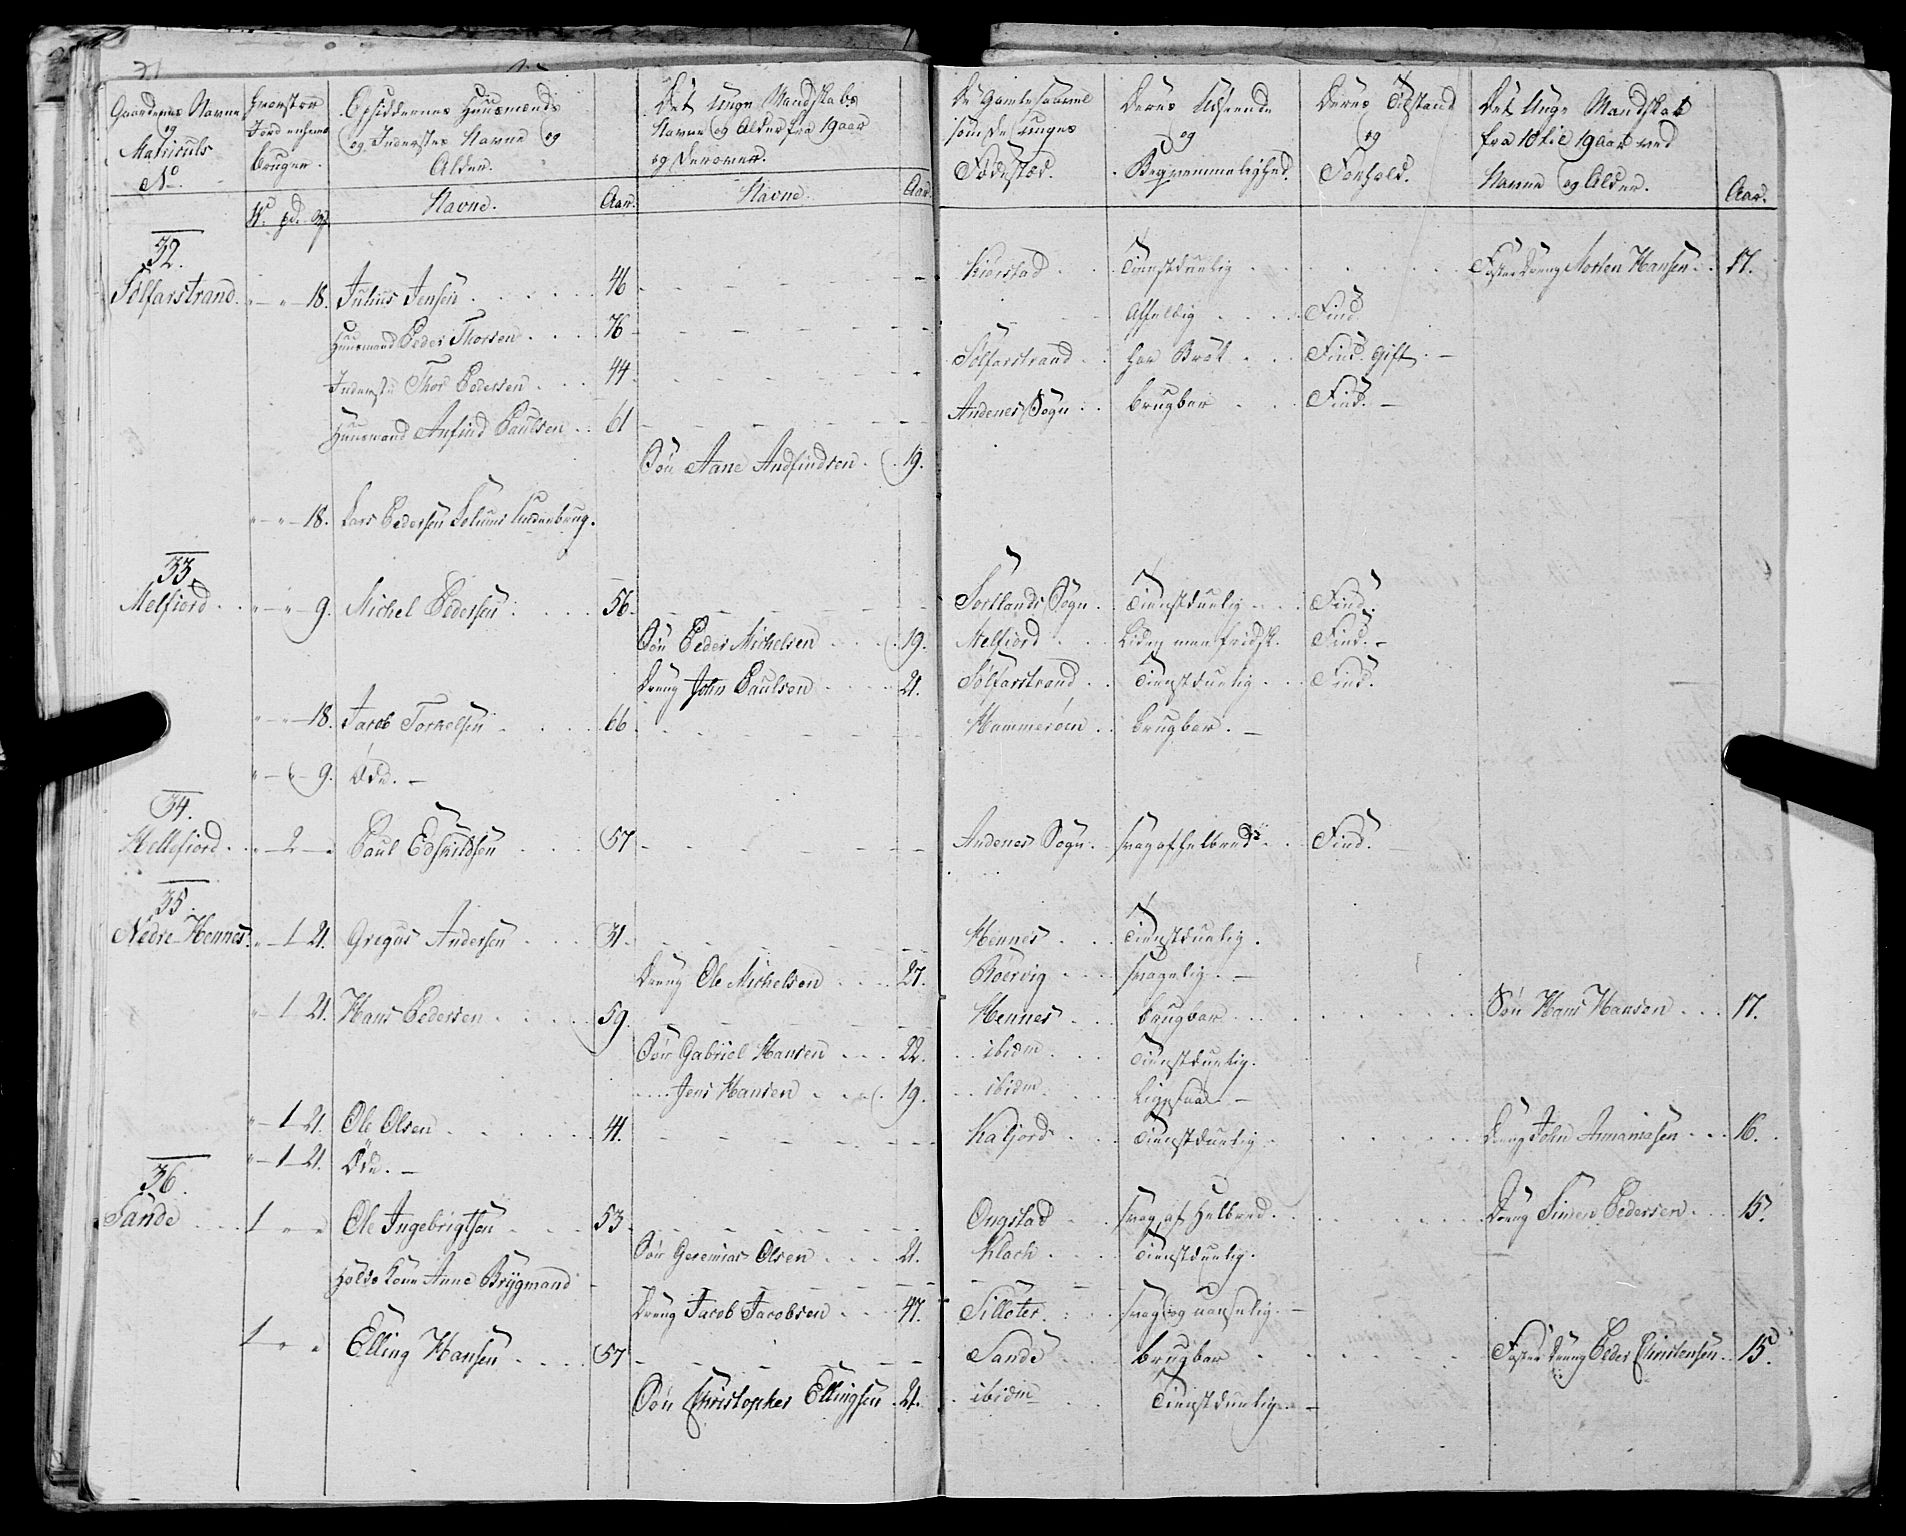 Gaardenes Navne og Matriculs No.
Hvorstor Jord enhver bruger.
W. pd. mk
Opsiddernes Huusmænds og Inderstes Navne og Alder.
Navne. Aar.
Det Unge Mandskabs Navne og Alder fra 19 aar og derover.
Navne. Aar.
De Gamle saavel som de Unges Fødested.
Deres Udseende og Beqvemmelighed.
Deres Tilstand og Forhold.
Det Unge Mandskab fra 10 til 19 Aar ved Navne og Alder.
Aar.
32.
Solfarstrand. " " 18. Julius Jensen 46 Kiørstad Tienstduelig Foster Dreng Morten Hansen 17.
Huusmand Peder Thorsen 76 Affeldig Find
Inderste Thor Pedersen 44 Sølfarstrand har Brok Find. gift.
Huusmand Anfind Paulsen 61 Andenes Sogn brugbar Find.
Søn Aane Andfindsen 19.
" " 18. Lars Pedersen Underbrug.
33.
Melfiord " " 9. Michel Pedersen 56 Sortlands Sogn Tienstduelig Find.
Søn Peder Michelsen 19. Melfiord Liden men fridsk. Find.
Dreng John Paulsen 21. Sølfarstrand Tienstduelig Find.
" " 18. Jacob Torkelsen 66 Hammerøen brugbar.
" " 9. Øde.
34.
Hellefiord " 2 " Paul Edskildsen 57 Andenes Sogn svag af helbred Find.
35.
Nedre Hennes " 1 21. Gregus Andersen 31. Hennes Tienstduelig.
Dreng Ole Michelsen 27. Roervig svagelig.
" 1 21. Hans Pedersen 59. Hennes brugbar Søn Hans Hansen 17.
Søn Gabriel Hansen 22. ibidm Tienstduelig.
Jens Hansen 19. ibidm Ligesaa
" 1 21. Ole Olsen 41. Kalfjord Tienstduelig Dreng John Annaniasen 16.
" 1 21. Øde.
36.
Sande 1 " " Ole Ingebrigtsen 53 Ongstad svag af Helbred Dreng Simen Pedersen 15.
Søn Geremias Olsen 21. Klach Tienstduelig.
Holds Kone Anne Brygmand
Dreng Jacob Jacobsen 47. Silloter svag og uanselig.
1 " " Elling Hansen 57 Sande brugbar Foster Dreng Peder Christensen 15.
Søn Christopher Ellingsen 21. ibidm Tienstduelig.